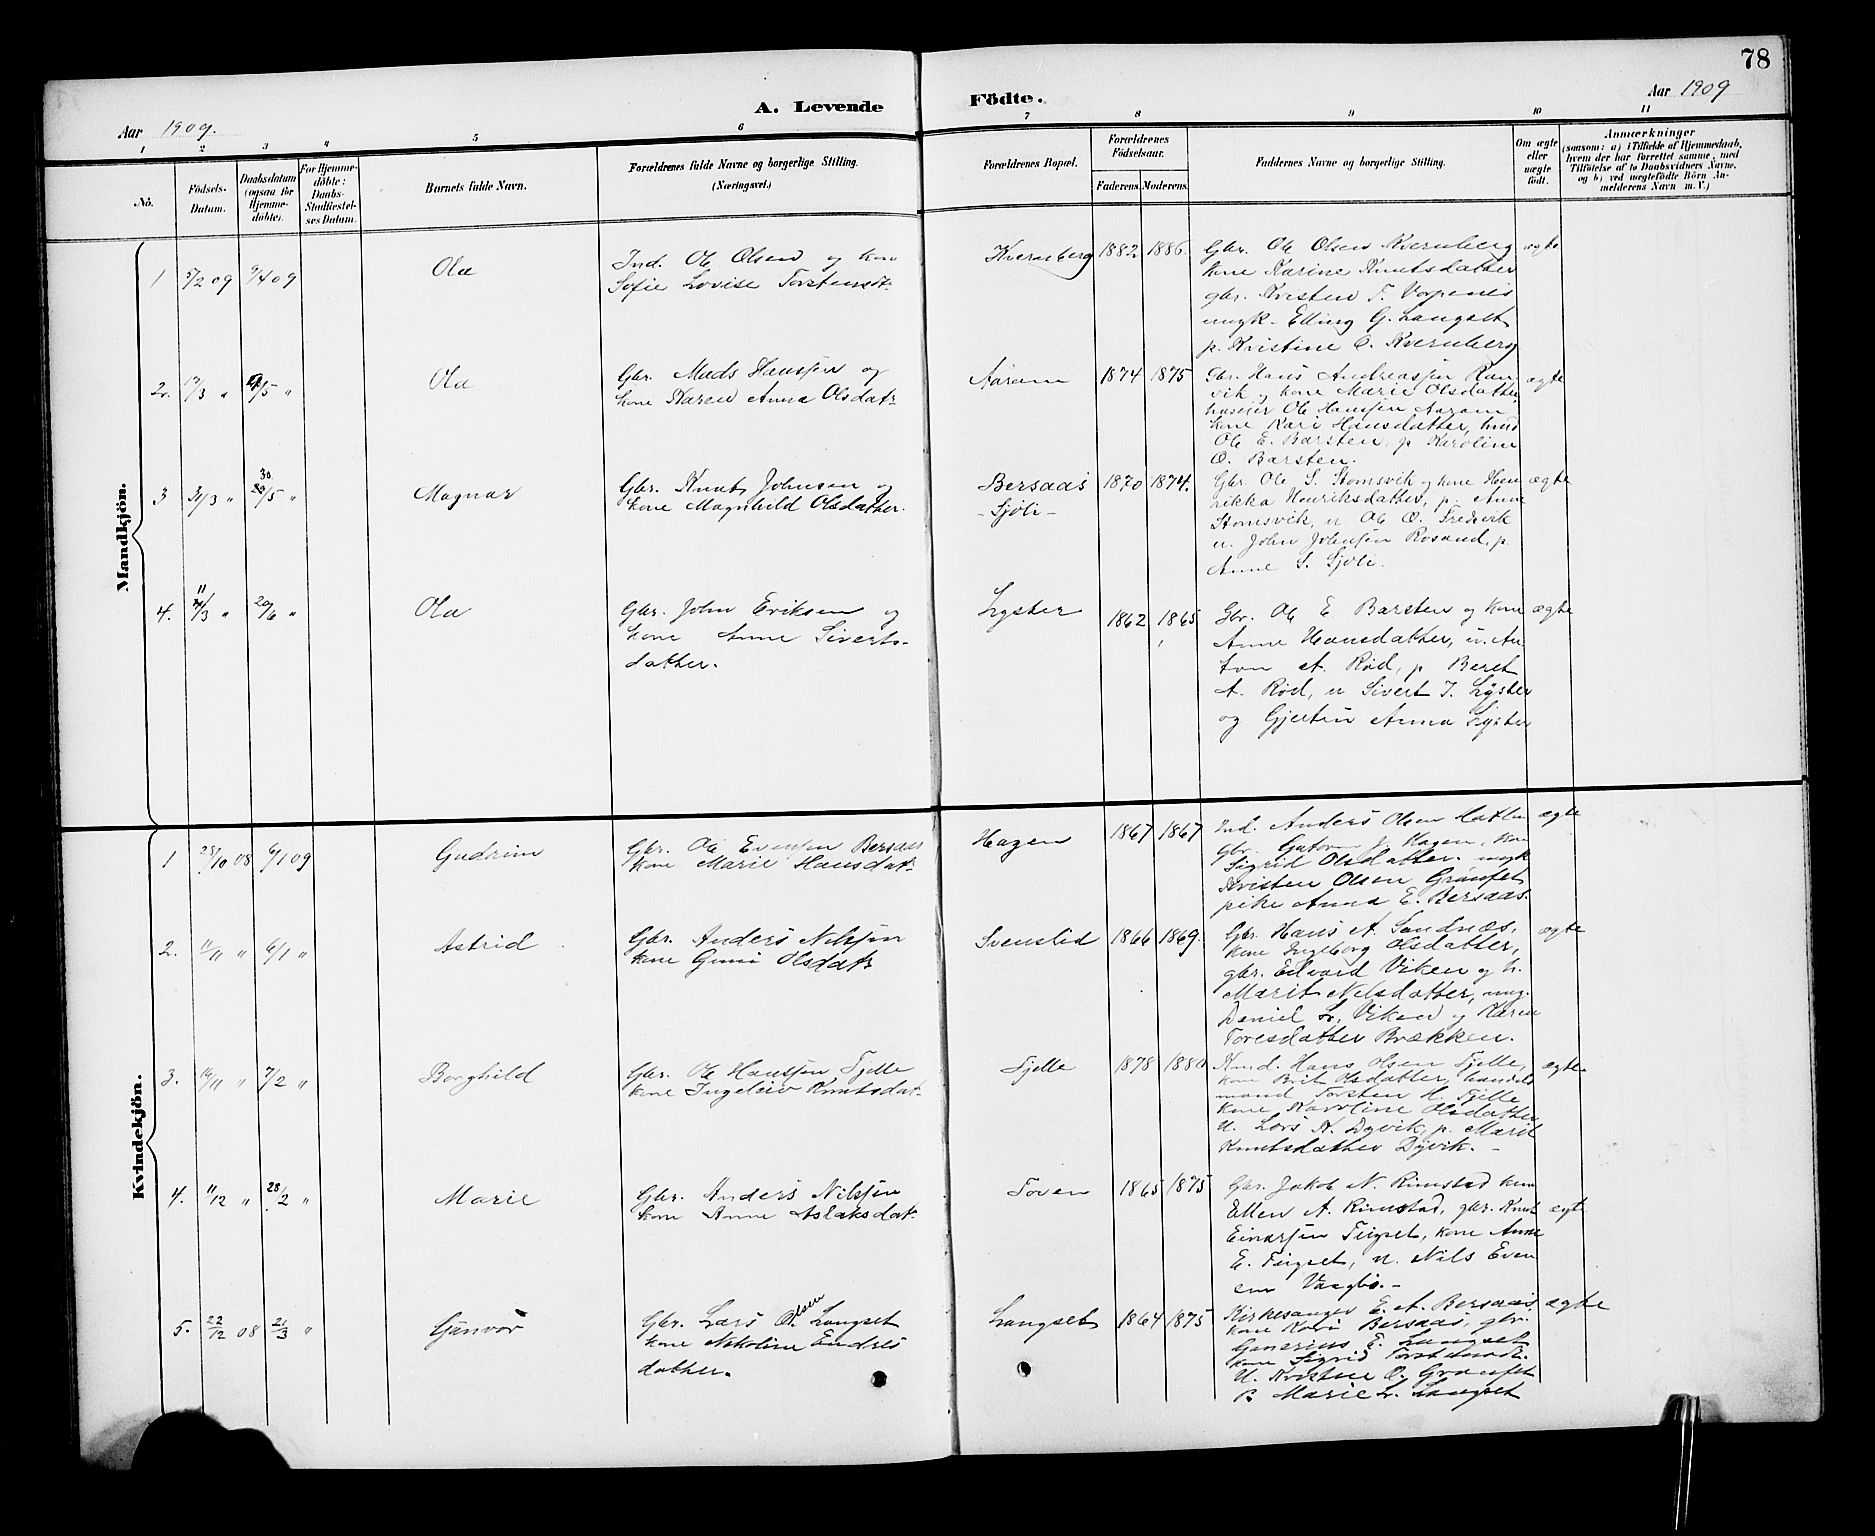 78
A. Levende Födte.
Aar 1909.
Aar 1909
1 2 3 4 5 6 7 8 9 10 11
No.
Födsels-
Datum.
Daabsdatum
(ogsaa for
Hjemme-
döbte).
For Hjemme-
döbte:
Daabs-
Stadfæstel-
ses Datum.
Barnets fulde Navn.
Forældrenes fulde Navne og borgerlige Stilling.
(Næringsvei.)
Forældrenes Bopæl.
Forældrenes
Födselsaar.
Faderens. Moderens.
Faddernes Navne og borgerlige Stilling.
Om ægte
eller
uægte
født.
Anmærkninger
(saasom: a) i Tilfælde af Hjemmedaab,
hvem der har forrettet samme, med
Tilföielse af to Daabsvidners Navne,
og b) ved uægtefödte Börn An-
melderens Navn m. V.)
Mandkjön.
1 5/2 09 9/4 09 Ola
Ind. Ole Olsen og kone
Sofie Lovise Torstensdt.
Kvernberg 1882 1886
Gbr. Ole Olsen Kvernberg
kone Karine Knutsdatter
gbr. Kristen T. Vorpenes
ungk. Elling G. Langset
p. Kristine O. Kvernberg
ægte
2. 17/3 " 9/5 " Ola
Gbr. Mads Hansen og
kone Karen Anna Olsdatr
Aaram 1874 1875
Gbr. Hans Andreassen Ran
vik og kone Marie Olsdatter
huseier Ole Hanssen Aaram
kone Kari Hansdatter,
Ole E. Barsten, p Karoline
O. Barsten.
ægte
3 31/3 " 30/5 " Magnar
Gbr. Knut Johnsen og
kone Magnhild Olsdatter.
Bersaas
- Sjöli - 1870 1874.
Gbr. Ole S. Stomsvik og kone Hen
rikka Henriksdatter, p. Anne
Stomsvik, u Ole O. Fredvik
u. John Johnsen Rosand, p.
Anne S. Sjöli.
ægte
4. 11/3 " 20/6 " Ola
Gbr. John Eriksen og
kone Anne Siverts-
datter.
Lyster 1862 1865
Gbr. Ole E. Barsten og kone
Anne Hansdatter, u. An
ton A. Röd, p Beret
A. Röd, u Sivert J. Lyster
og Gjertin Anna Lyster
ægte
Kvindekjön.
1 28/10 08 6/1 09 Gudrun
Gbr. Ole Evensen Bersaas
kone Marie Hansdat.
Hagen 1867 1867
Ind. Anders Olsen
gbr. J. Hagen, kone
Sigrid Olsdatter. ungk
Kristen Olsen Grönset
pike Anna E. Bersaas.
ægte
2. 11/11 " 6/1 " Astrid
Gbr. Anders Nilsen
kone Guru Olsdatr
Svenslid 1866 1869.
Gbr. Hans A. Sandnæs,
kone Ingeborg Olsdatter,
gbr. Edvard Viken og k.
Marit Nilsdatter, ung.
Daniel L. Viken og Karen
Toresdatter Brækken.
ægte
3. 14/11 " 7/2 " Borghild
Gbr. Ole Hanssen Tjelle
kone Ingeleiv Knutsdat.
Tjelle 1878 1880
Hans Olsen Tjelle,
kone Brit Olsdatter, handels
mand Torsten H. Tjelle
kone Karoline Olsdatter
u. Lars K. Dyvik, p. Marit
Knutsdatter Dyvik. -
ægte
4. 11/12 " 28/2 " Marie
Gbr. Anders Nilsen
kone Anne Aslaksdat.
Toven 1865 1875
Gbr. Jakob N. Rimstad kone
Ellen A. Rimstad, gbr. Knut
Einarsen Tirpset, kone Anne
E. Tirpset, u. Nils Even
sen Vaagbö. -
ægte
5. 22/12 08 21/3 " Gunvor
Gbr. Lars Olsen Langset
kone Nikoline Endres
datter.
Langset 1864 1875
Kirkesanger E. A. Bersaas
kone Kari Bersaas, gbr.
Gunerius E. Langset
kone Sigrid Torstensdt.
U. Kristen O. Grönset
P. Marie L. Langset
ægte